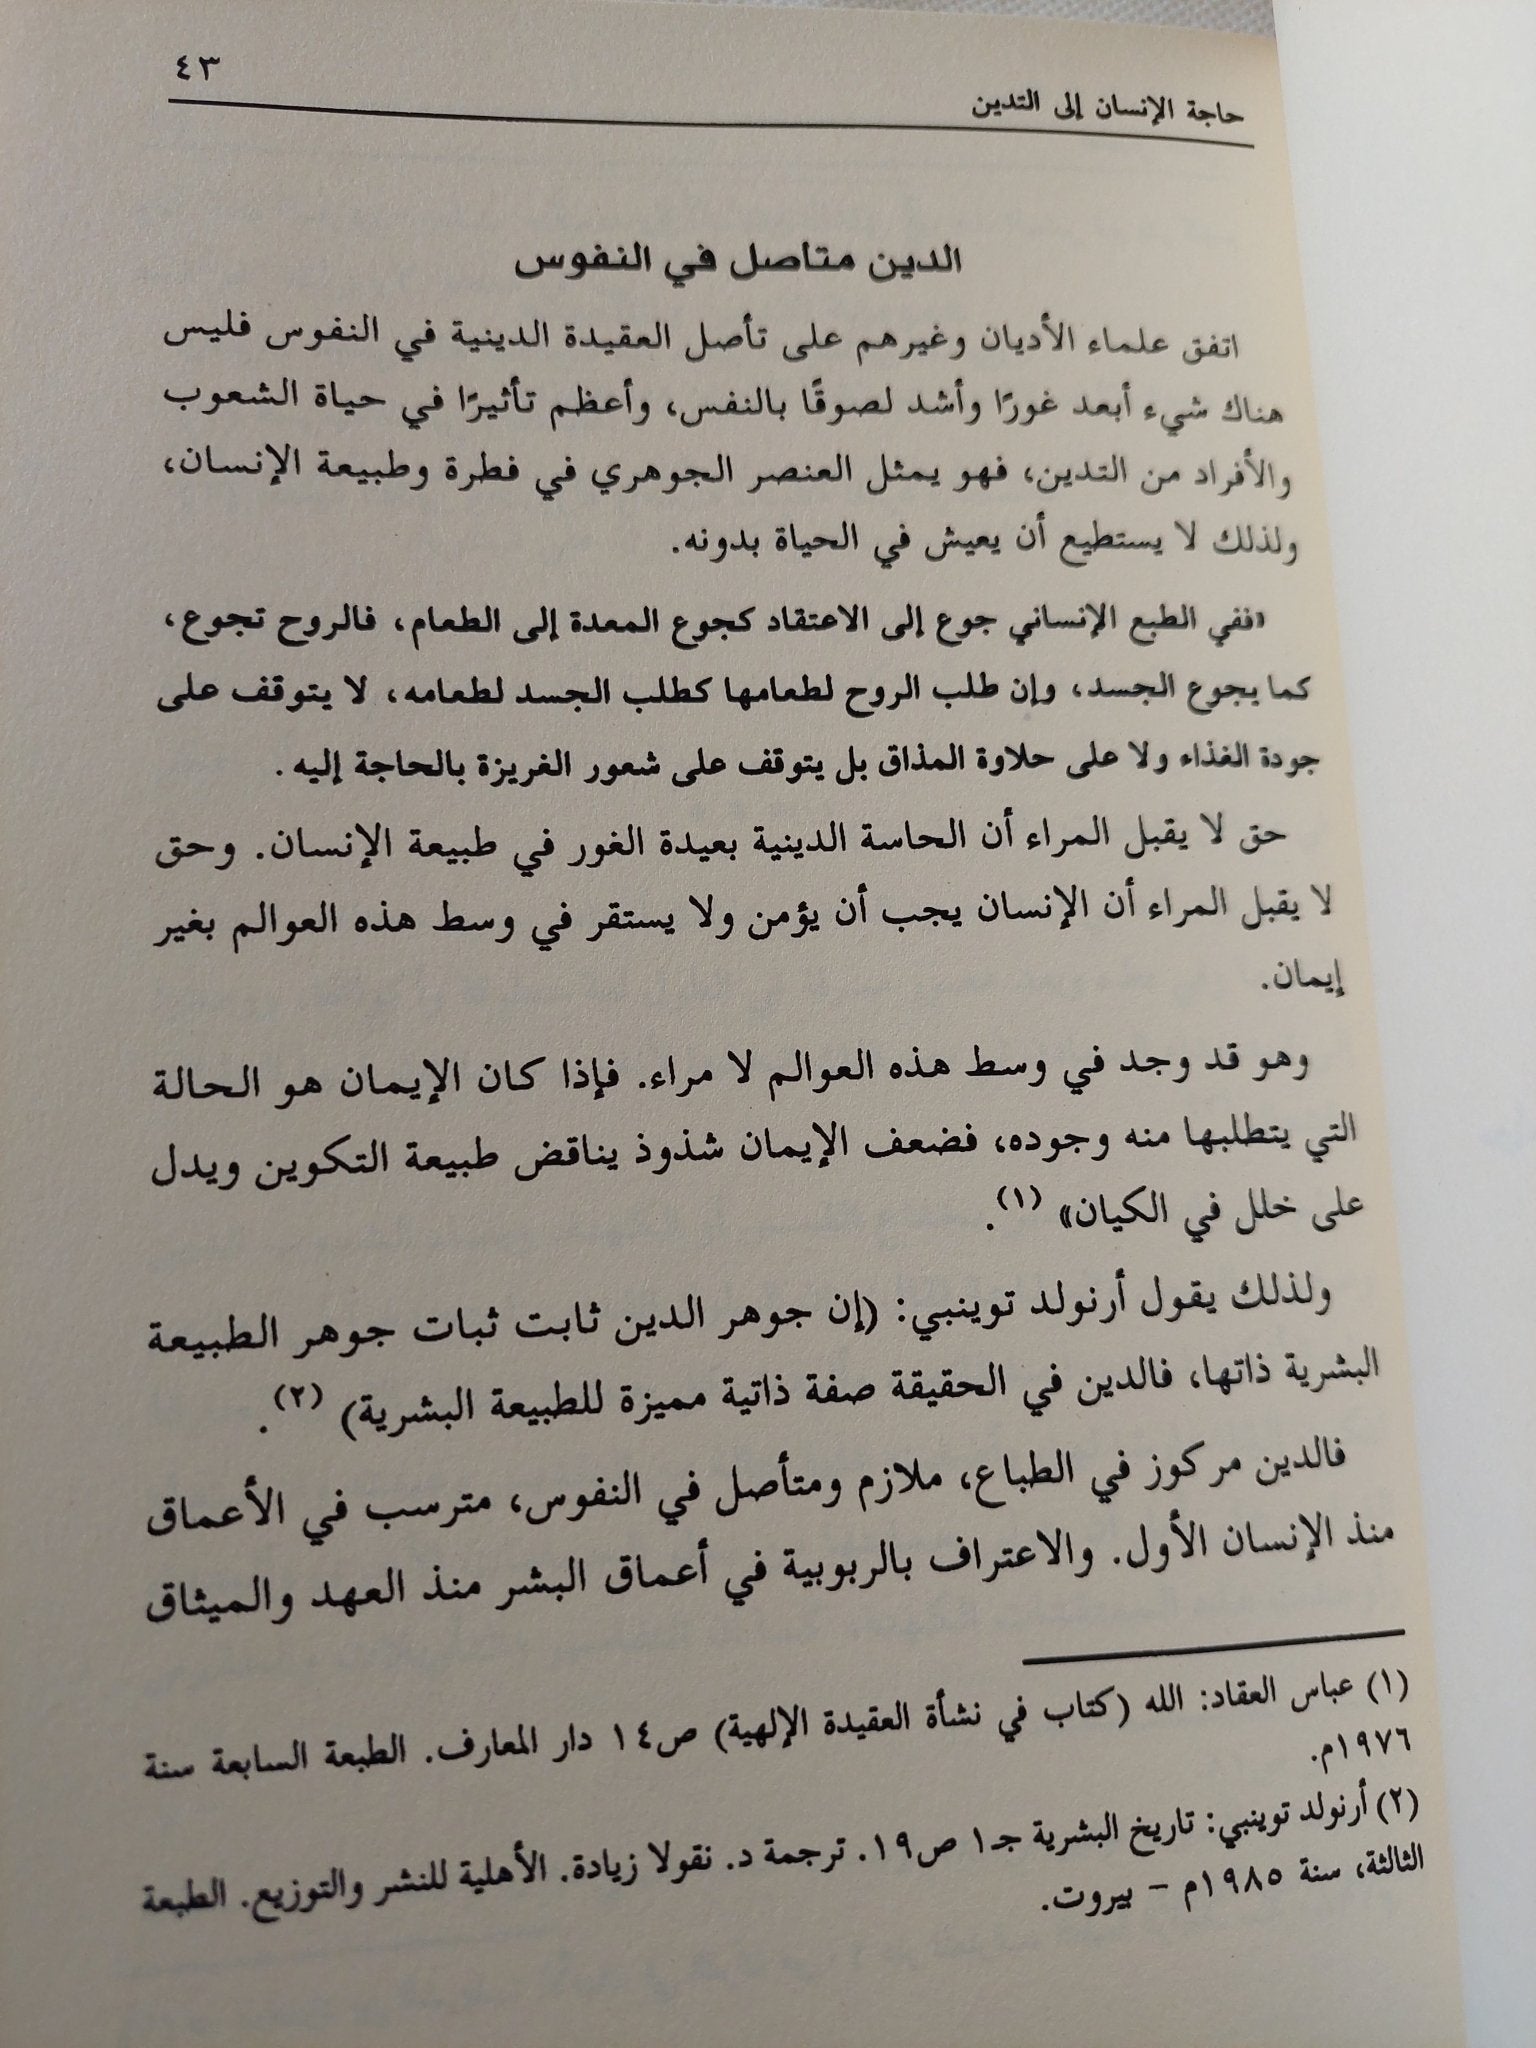 حاجة الإنسان إلى التدين
٤٣
الدين متاصل في النفوس
اتفق علماء الأديان وغيرهم على تأصل العقيدة الدينية في النفوس فليس
هناك شيء أبعد غورًا وأشد لصوقًا بالنفس، وأعظم تأثيرًا في حياة الشعوب
والأفراد من التدين، فهو يمثل العنصر الجوهري في فطرة وطبيعة الإنسان،
ولذلك لا يستطيع أن يعيش في الحياة بدونه.
«ففي الطبع الإنساني جوع إلى الاعتقاد كجوع المعدة إلى الطعام، فالروح تجوع،
كما يجوع الجسد، وإن طلب الروح لطعامها كطلب الجسد لطعامه، لا يتوقف على
جودة الغذاء ولا على حلاوة المذاق بل يتوقف على شعور الغريزة بالحاجة إليه.
حق لا يقبل المراء أن الحاسة الدينية بعيدة الغور في طبيعة الإنسان. وحق
لا يقبل المراء أن الإنسان يجب أن يؤمن ولا يستقر في وسط هذه العوالم بغير
إيمان.
وهو قد وجد في وسط هذه العوالم لا مراء. فإذا كان الإيمان هو الحالة
التي يتطلبها منه وجوده، فضعف الإيمان شذوذ يناقض طبيعة التكوين ويدل
على خلل في الكيان» (١).
ولذلك يقول أرنولد توينبي: (إن جوهر الدين ثابت ثبات جوهر الطبيعة
البشرية ذاتها، فالدين في الحقيقة صفة ذاتية مميزة للطبيعة البشرية) (٢).
فالدين مركوز في الطباع، ملازم ومتأصل في النفوس، مترسب في الأعماق
منذ الإنسان الأول. والاعتراف بالربوبية في أعماق البشر منذ العهد والميثاق
(١) عباس العقاد: الله (كتاب في نشأة العقيدة الإلهية) ص١٤ دار المعارف. الطبعة السابعة سنة
١٩٧٦م.
(٢) أرنولد توينبي: تاريخ البشرية جـ١ ص١٩. ترجمة د. نقولا زيادة. الأهلية للنشر والتوزيع. الطبعة
الثالثة، سنة ١٩٨٥م - بيروت.